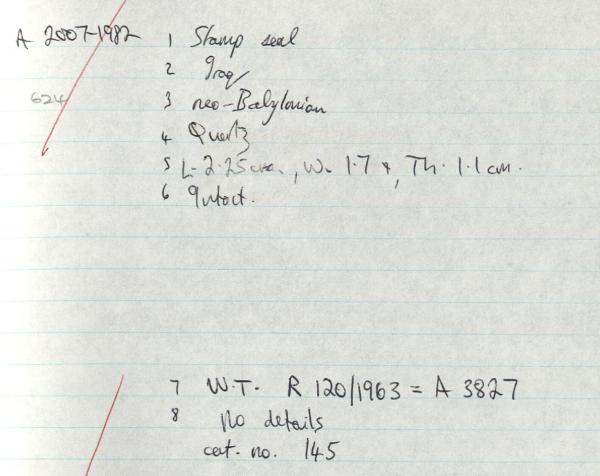 A 2007-1982 1 Stamp seal
2 Iraq
624 3 neo-Babylonian
4 Quartz
5 L- 2.25 cm., W. 1.7 &, Th. 1.1 cm.
6 Intact.
7 W.T. R 120/1963 = A 3827
8 No details
cat. no. 145